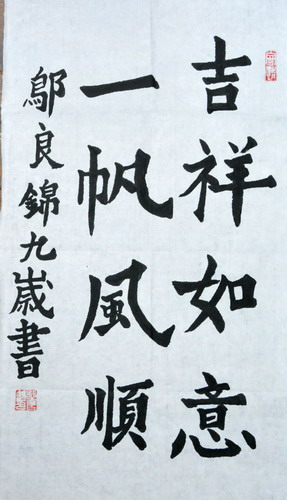 吉祥如意
一帆風順
鄔良錦九歲書